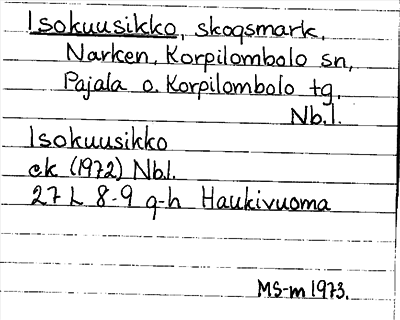 Isokuusikko, skogsmark,
Narken, Korpilombolo sn,
Pajala o. Korpilombolo tg,
Nb.l.
Isokuusikko
ek (1972) Nb.l.
27 L 8-9 g-h Haukivuoma
MS-m 1973.